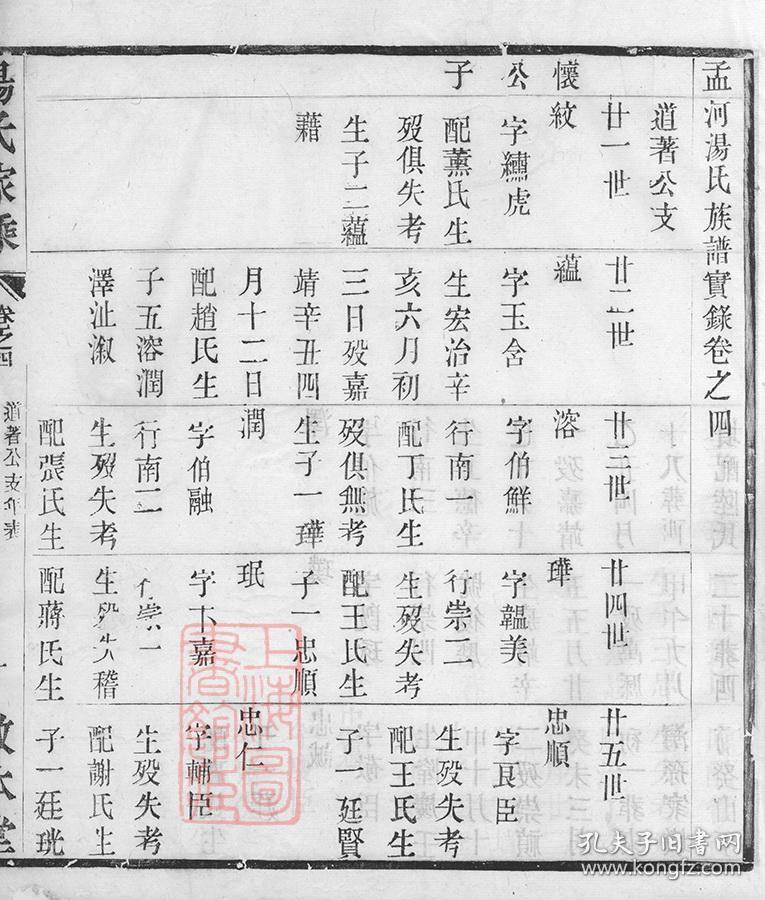 孟河湯氏族譜實錄卷之四
道著公支
廿一世
懷紋
公
子
字繡虎
配薰氏生
歿俱失考
生子二蘊
藉
廿二世
蘊
字玉含
生宏治辛
亥六月初
三日歿嘉
靖辛丑四
月十二日
配趙氏生
子五溶潤
澤沚溆
廿三世
溶
字伯鮮
行南一
配丁氏生
歿俱無考
生子一璍
潤
字伯融
行南二
生歿失考
配張氏生
廿四世
璍
字韞美
行崇二
生歿失考
配王氏生
子一忠順
珉
嘉
生歿失稽
配蔣氏生
廿五世
忠順
字良臣
生歿失考
配王氏生
子一廷賢
忠仁
字輔臣
生歿失考
配謝氏生
子一廷珖
湯氏家乘
卷之四
道著公支
上海圖書館藏
孔夫子旧书网
www.kongfz.com